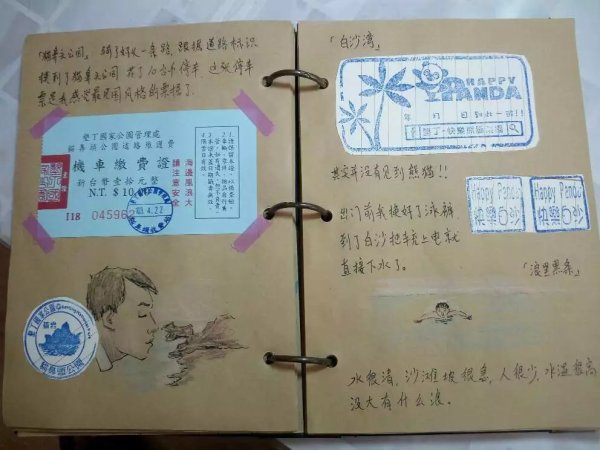 「猫鼻头公园」骑了好久一条路,跟据道路标识
摸到了猫鼻头公园 花了10台币停车,这张停车
票是我感觉最民国风格的票据了。
墾丁國家公園管理處
貓鼻頭公園道路維護費
機車繳費證
新台幣壹拾元整
N.T. $ 10
118 045962
4.22
海邊風浪大
請注意安全
貓鼻頭公園
「白沙湾」
HAPPY
PANDA
年 月 日到此一遊!!
墾丁·快樂熊貓
其实并没有见到熊猫!!
Happy Panda
快樂白沙
Happy Panda
快樂白沙
出门前我换好了泳裤
到了白沙把车充上电就
直接下水了。
「浪里黑条」
水很清,沙滩坡很急,人很少,水温很高
没大有什么浪。